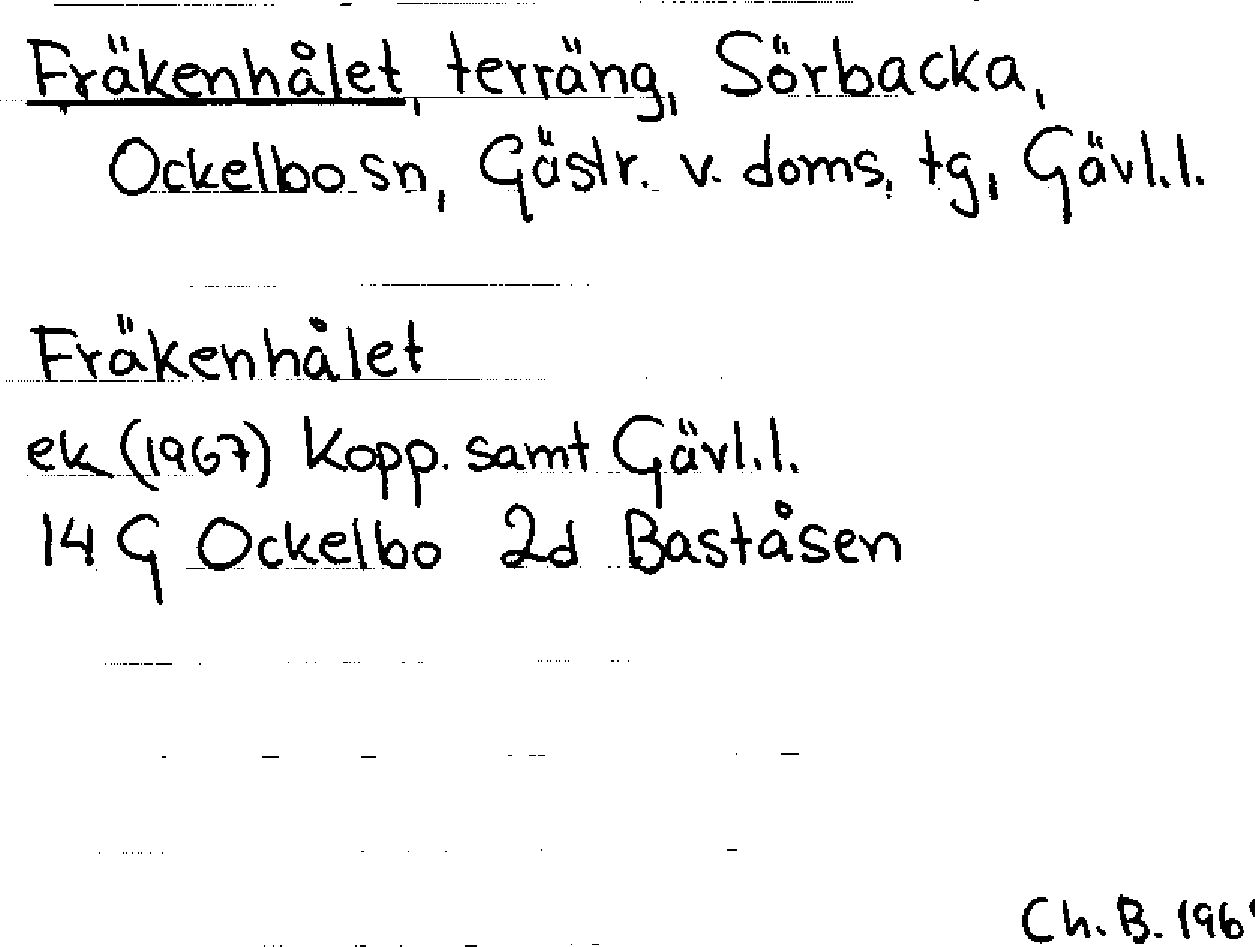 Fräkenhålet, terräng, Sörbacka,
Ockelbo sn, Gästr. v. doms. tg, Gävl.l.
Fräkenhålet
ek (1967) Kopp. samt Gävl.l.
14 G Ockelbo 2d Baståsen
Ch. B.